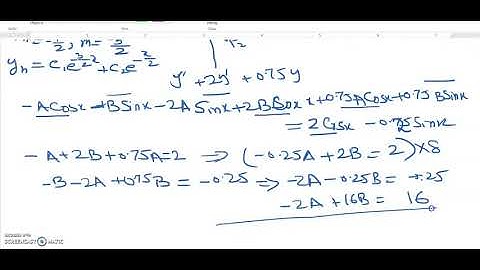 m = -1/2, m = -3/2
y_h = C₁e^{-3/2 x} + C₂e^{-x/2}
y'' + 2y' + 0.75y
-ACosx - BSinx - 2A Sinx + 2B Cosx + 0.75ACosx + 0.75 BSinx
= 2Cosx - 0.25Sinx
-A + 2B + 0.75A = 2 ⟹ (-0.25A + 2B = 2) × 8
-B - 2A + 0.75B = -0.25 ⟹ -2A - 0.25B = -0.25
-2A + 16B = 16
RECORDED WITH
SCREENCAST MATIC